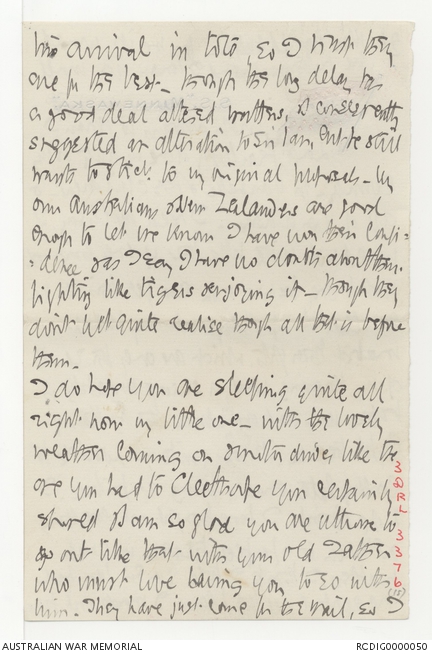 his arrival in toto, so I think they
are for the best – though the long delay has
a good deal altered matters, & I consequently
suggested an alteration to Sir Ian, but he still
wants to stick to my original proposals – My
own Australians & New Zealanders are good
enough to let me know I have won their confi=
=dence & as I say I have no doubts about them
fighting like tigers & enjoying it – though they
don't yet quite realise though all that is before
them –
I do hope you are sleeping quite all
right now my little one – with the lovely
weather coming on & motor drives like the
one you had to Cleethorpe you certainly
should & I am so glad you are able to
go out like that with your old Father
who must love having you to go with
him. They have just come for the mail, so I
3 DRL 3376
(15)
AUSTRALIAN WAR MEMORIAL
RCDIG0000050